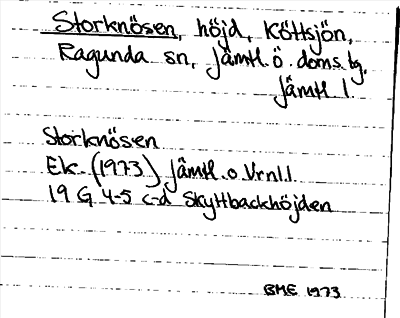 Storknösen, höjd, Köttsjön,
Ragunda sn, Jämtl. ö. doms. tg,
Jämtl l.
Storknösen
Ek. (1973) Jämtl. o Vrnl.l
19 G 4-5 c-d Skyttbackhöjden
BME 1973